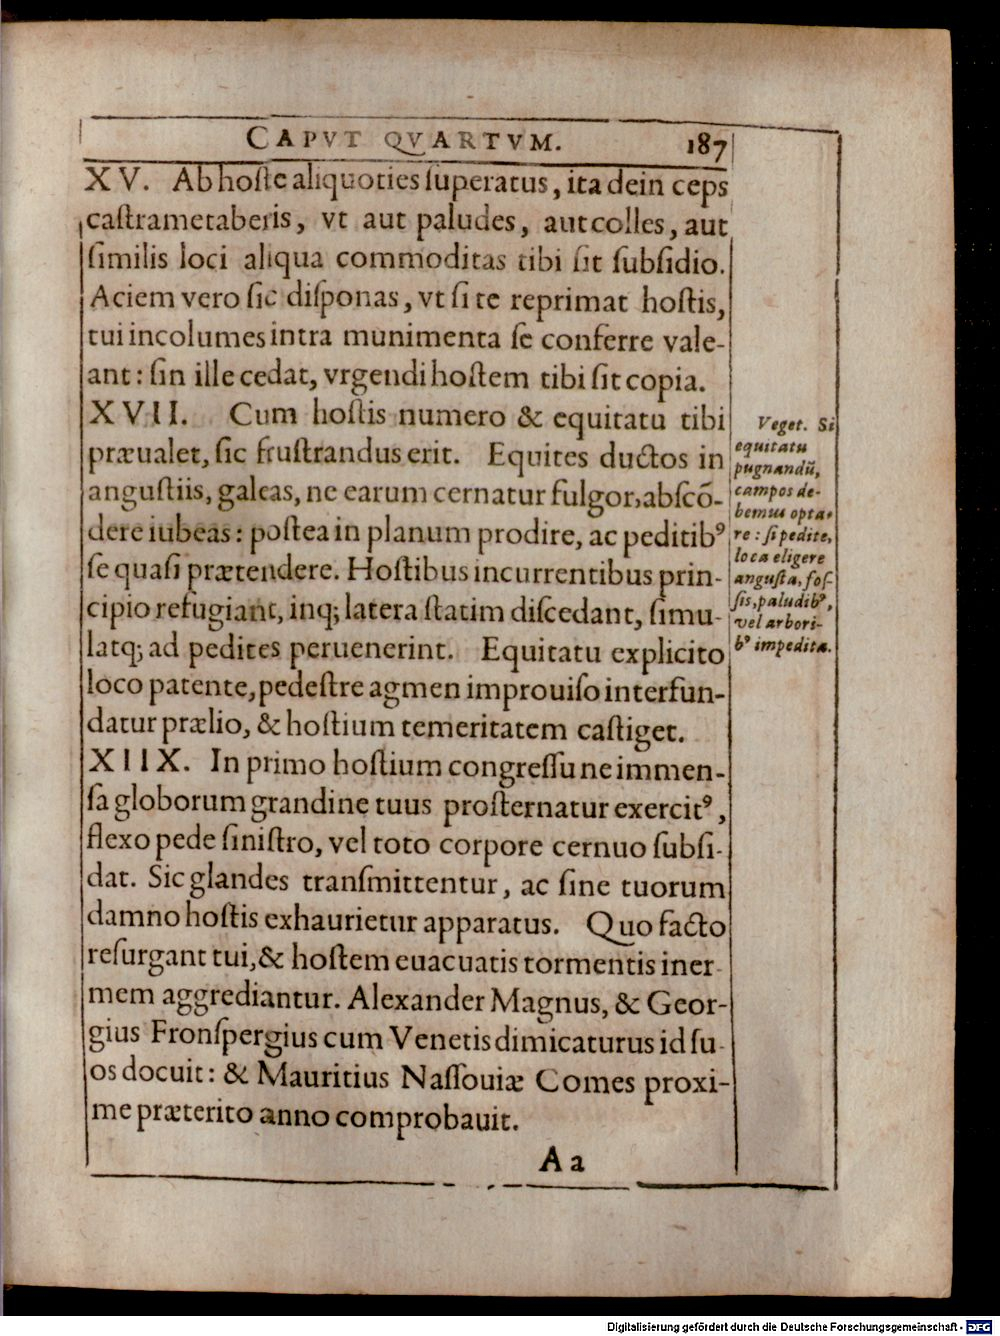 CAPVT QVARTVM. 187
XV. Ab hoſte aliquoties ſuperatus, ita dein ceps
caſtrametaberis, vt aut paludes, aut colles, aut
ſimilis loci aliqua commoditas tibi ſit ſubſidio.
Aciem vero ſic diſponas, vt ſi te reprimat hoſtis,
tui incolumes intra munimenta ſe conferre vale-
ant: ſin ille cedat, vrgendi hoſtem tibi ſit copia.
XVII. Cum hoſtis numero & equitatu tibi
præualet, ſic fruſtrandus erit. Equites ductos in
anguſtiis, galeas, ne earum cernatur fulgor, abſcō-
dere iubeas: poſtea in planum prodire, ac peditibꝰ
ſe quaſi prætendere. Hoſtibus incurrentibus prin-
cipio refugiant, inq; latera ſtatim diſcedant, ſimu-
latq; ad pedites peruenerint. Equitatu explicito
loco patente, pedeſtre agmen improuiſo interfun-
datur prælio, & hoſtium temeritatem caſtiget.
XIIX. In primo hoſtium congreſſu ne immen-
ſa globorum grandine tuus proſternatur exercitꝰ,
flexo pede ſiniſtro, vel toto corpore cernuo ſubſi-
dat. Sic glandes tranſmittentur, ac ſine tuorum
damno hoſtis exhaurietur apparatus. Quo facto
reſurgant tui, & hoſtem euacuatis tormentis iner-
mem aggrediantur. Alexander Magnus, & Geor-
gius Fronſpergius cum Venetis dimicaturus id ſu-
os docuit: & Mauritius Naſſouiæ Comes proxi-
me præterito anno comprobauit.
Aa
Veget. Si
equitatu
pugnandū,
campos de-
bemus opta-
re: ſi pedite,
loca eligere
anguſta, foſ-
ſis, paludibꝰ,
vel arbori-
bꝰ impedita.
Digitalisierung gefördert durch die Deutsche Forschungsgemeinschaft - DFG